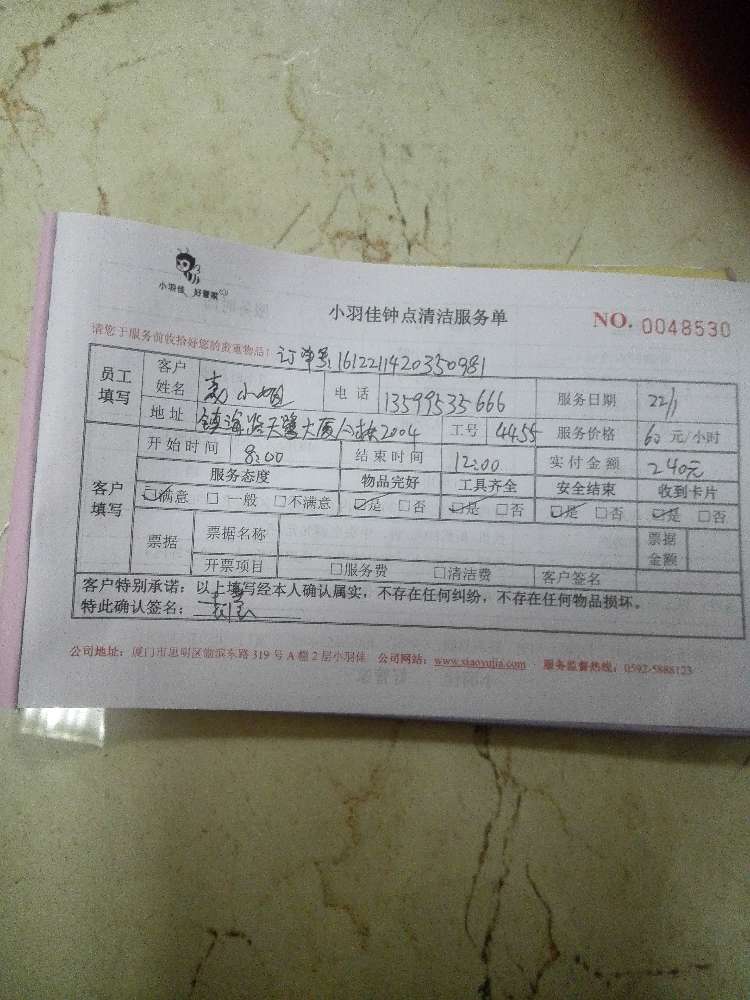 小羽佳 好管家
小羽佳钟点清洁服务单
NO. 0048530
请您于服务前收拾好您的贵重物品!
订单号:161221142035 0981
员工填写 客户姓名 小姐 电话 13599535666 服务日期 22/1
地址 镇海路天鹭大厦 2004 工号 4455 服务价格 60 元/小时
客户填写 开始时间 8:00 结束时间 12:00 实付金额 240元
服务态度 物品完好 工具齐全 安全结束 收到卡片
☑满意 □一般 □不满意 ☑是 □否 ☑是 □否 ☑是 □否 ☑是 □否
票据 票据名称 票据金额
开票项目 □服务费 □清洁费 客户签名
客户特别承诺:以上填写经本人确认属实,不存在任何纠纷,不存在任何物品损坏。
特此确认签名:
公司地址:厦门市思明区 东路 319 号 A 幢 2 层小羽佳 公司网站:www.xiaoyujia.com 服务监督热线:0592-5888123